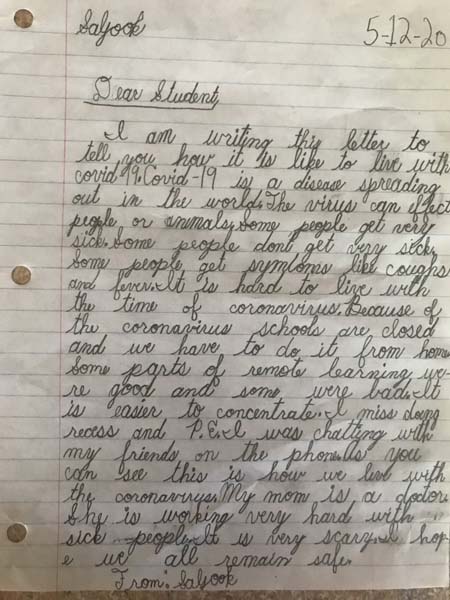 Saljook
5-12-20
Dear Student,
I am writing this letter to
tell you how it is like to live with
covid 19. Covid-19 is a disease spreading
out in the world. The virus can effect
people or animals. Some people get very
sick. Some people dont get very sick.
Some people get symtoms like coughs
and fever. It is hard to live with
the time of coronavirus. Because of
the coronavirus schools are closed
and we have to do it from home
Some parts of remote learning we-
re good and some were bad. It
is easier to concentrate. I miss doing
recess and P.E. I was chatting with
my friends on the phone. As you
can see this is how we live with
the coronavirus. My mom is a doctor.
She is working very hard with
sick people. It is very scary. I hop
e we all remain safe.
From: Saljook